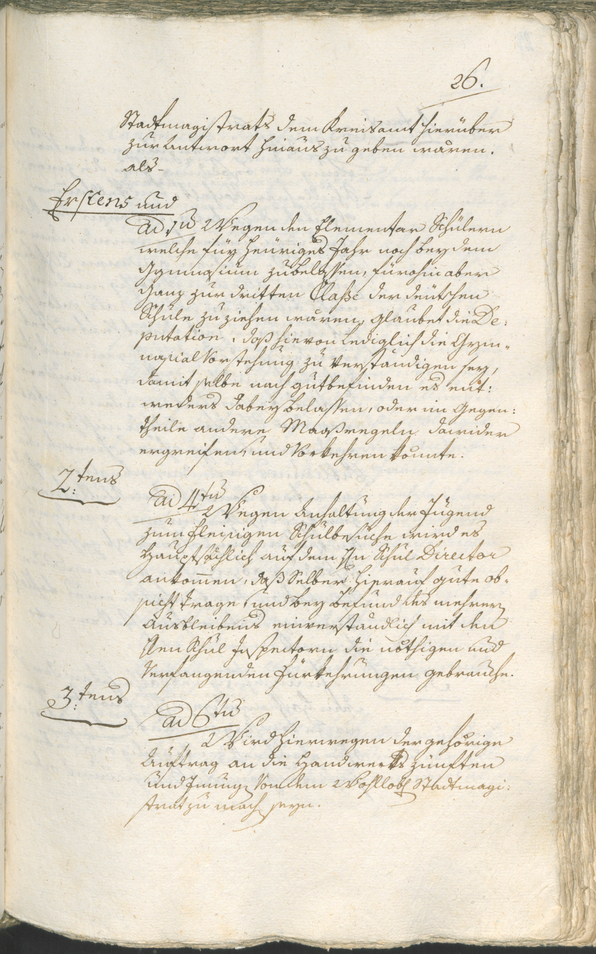 26.
Stadtmagistrats dem Kreisamt hierüber
zur Antwort hinauszugeben wären.
als
Erstens und
ad 1um Wegen den Elementar Schülern
welche für heüriges Jahr noch bey dem
Gymnasium zubelassen, fürohin aber
Ganz zur dritten Classe der deütschen
Schüle zu ziehen wären, glaubet die De:
putation, daß hievon lediglich die Gym-
nasial Vorstehung zu Verständigen sey,
damit selbe nach gutbefinden es ent:
weders dabey belassen, oder im Gegen:
theile andere Maaßregeln darwider
ergreifen, und Vorkehren könnte.
2:tens
ad 4tum
Wegen Anhaltung der Jugend
zum fleißigen Schulbesuche wird es
Hauptsächlich auf dem Hn Schul Director
ankomen, daß Selber hierauf gute ob-
sicht trage, und bey befund des mehrern
Ausbleibens einverständlich mit den
Hen Schul Inspectorn die nöthigen und
Verfangenden Fürkehrungen gebrauche.
3:tens
ad 6tum
Wird hierwegen der gehörige
Auftrag an die Handwerks zünften
Und Innung Von dem Wohllobl Stadtmagi:
strat zu mach seyn.